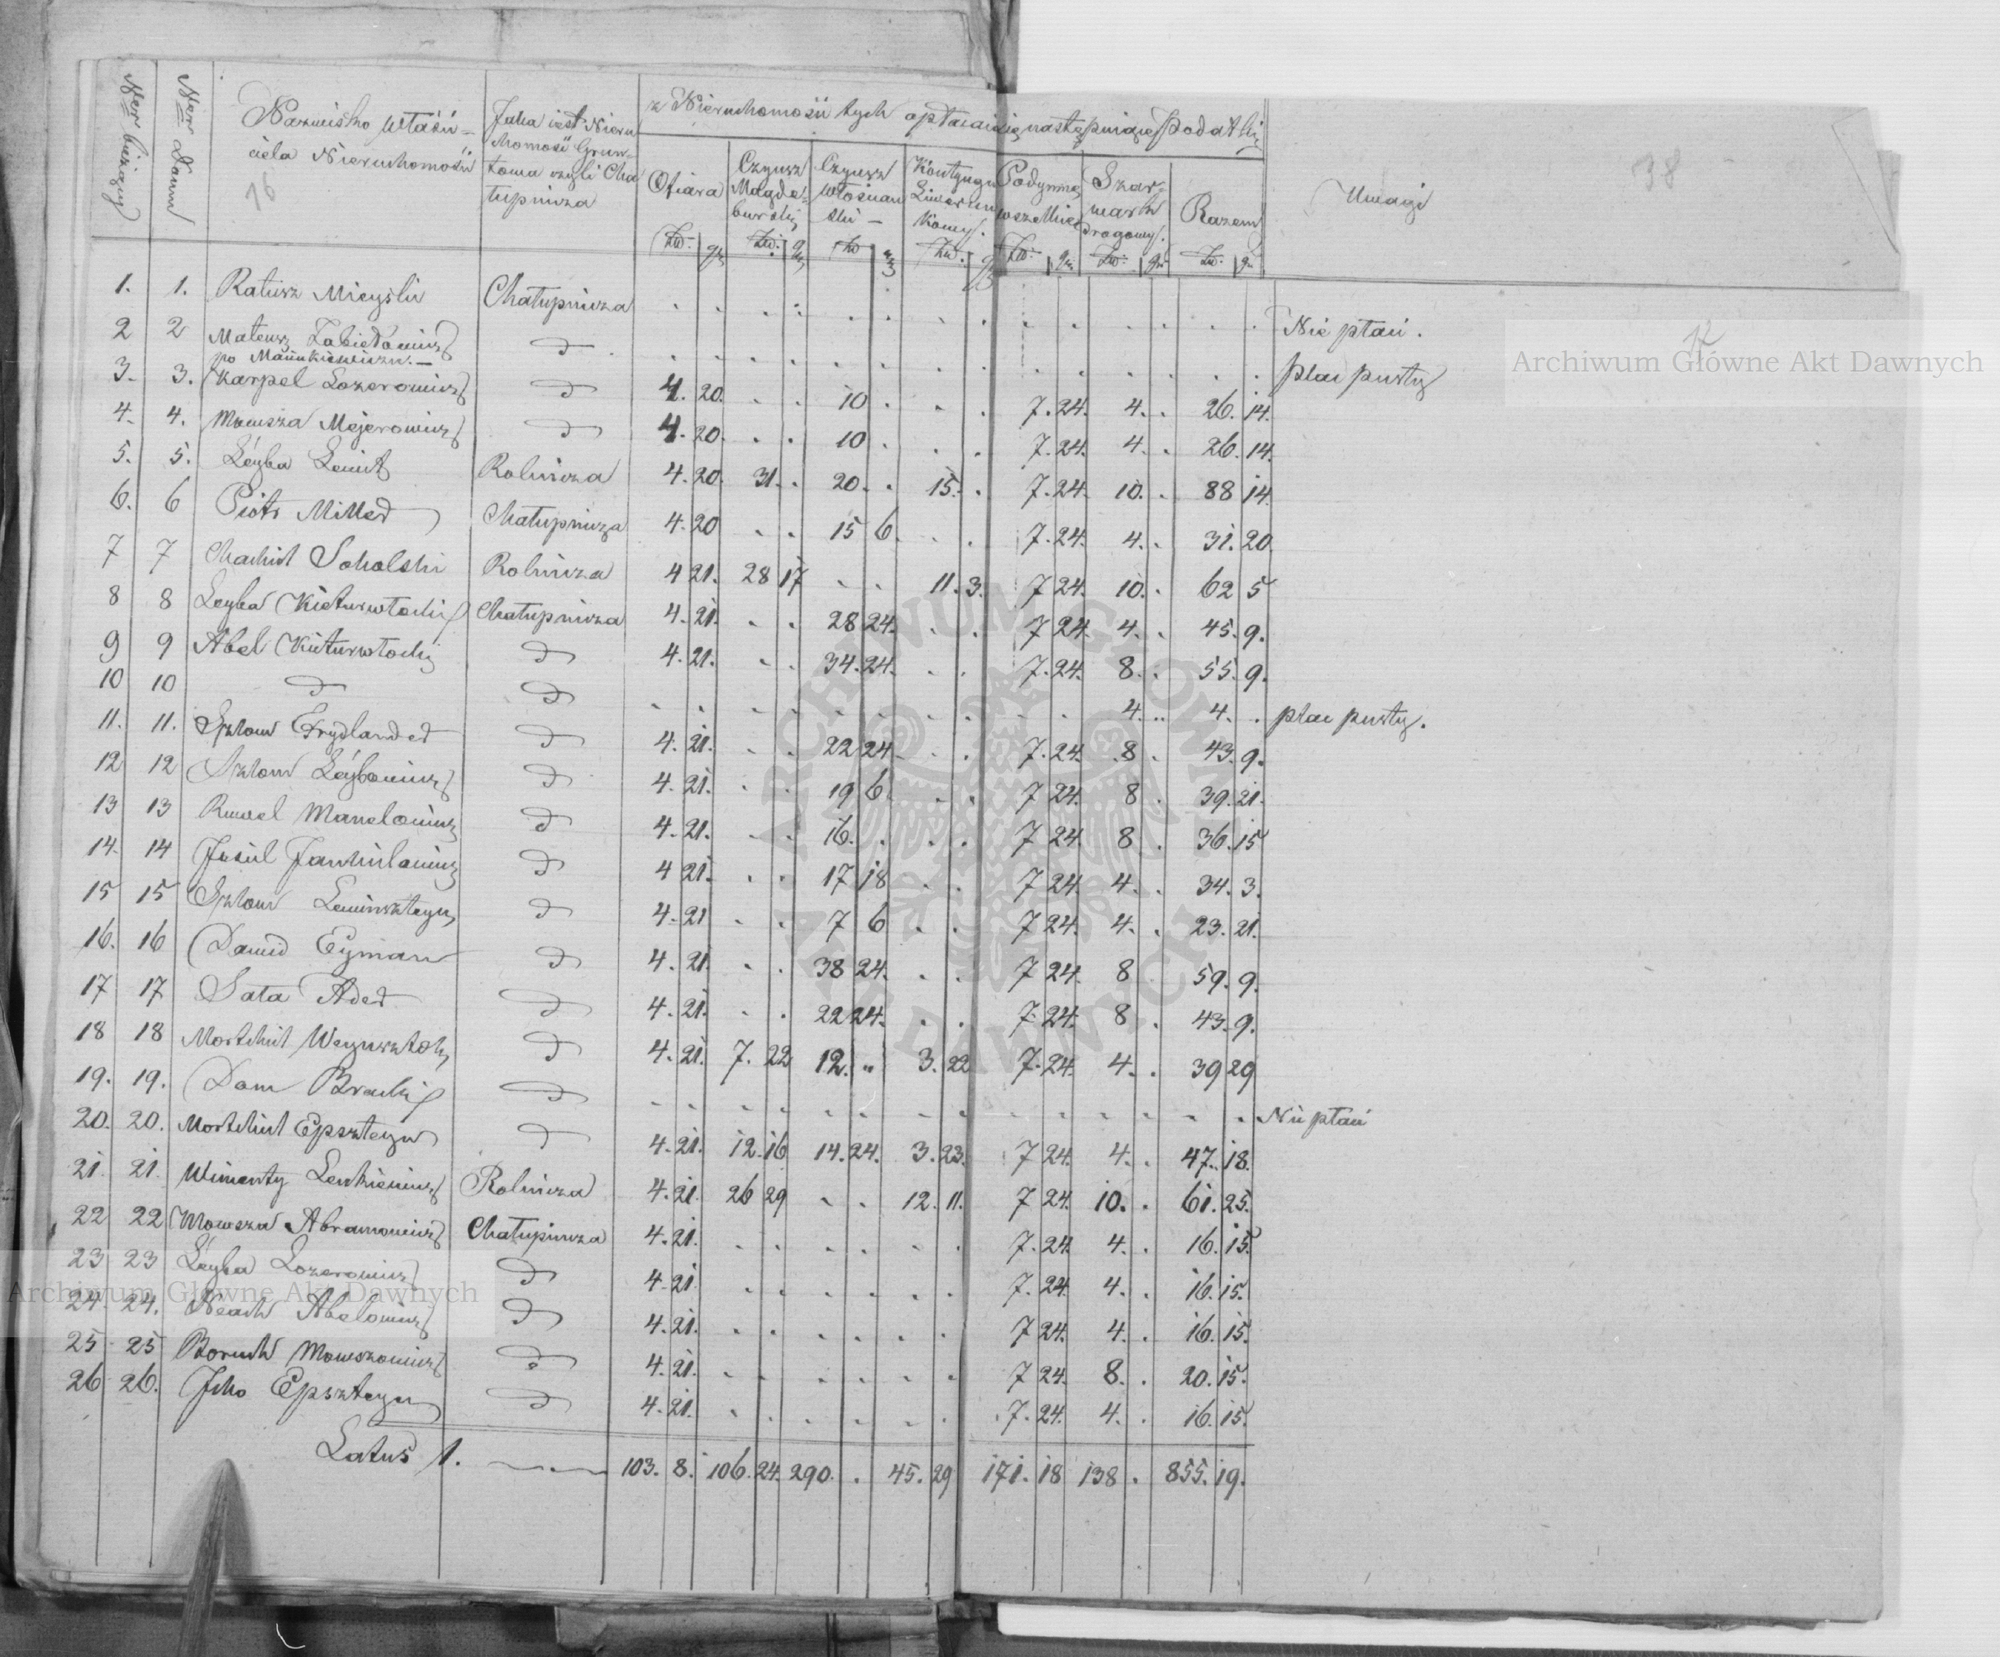 Ner bieżący Ner Domu Nazwisko właści- ciela Nieruchomości Jaka iest Nieru chomość Grun- towa czyli Cha łupnicza z Nieruchomości tych opłacaią się następuiące Podatki Uwagi
Ofiara Czynsz Magde- burski Czynsz włościan ski Kontyngens Liwerun kowy. Podymne wszelkie Szar- wark drogowy. Razem
Zł. gr. Zł. gr. Zł gr Zł. gr Zł. gr. Zł. gr. Zł. gr.
16
38
12
1. 1. Ratusz Mieyski Chałupnicza Nie płaci.
2 2 Mateusz Zabiedowicz po Mańkiewiczu.— d plac pusty
3. 3. Karpel Lozerowicz d 4. 20. 10 7. 24. 4. 26. 14.
4. 4. Mowsza Mejerowicz d 4. 20. 10 7. 24. 4. 26. 14.
5. 5. Leyba Lewit Rolnicza 4. 20. 31. 20. 15. 7. 24. 10. 88 14.
6. 6 Piotr Miller Chałupnicza 4. 20 15 6. 7. 24. 4. 31. 20.
7 7 Machiel Sokolski Rolnicza 4 21. 28 17 11. 3. 7 24. 10. 62 5
8 8 Leyba Kieturwłocki Chałupnicza 4. 21. 28 24. 7 24. 4. 45. 9.
9 9 Abel Kieturwłocki d 4. 21. 34. 24. 7. 24. 8. 55. 9.
10 10 d d 4. 4. plac pusty.
11. 11. Szlom Frydlander d 4. 21. 22 24. 7. 24. 8. 43. 9.
12 12 Szlom Leybowicz d 4. 21. 19 6. 7 24. 8. 39. 21.
13 13 Manelowicz d 4. 21. 16. 7 24. 8. 36. 15
14. 14 Josiel Jankielowicz d 4 21. 17 18 7 24. 4. 34. 3.
15 15 Szlom Lewinszteyn d 4. 21 7 6 7 24. 4. 23. 21.
16. 16 Dawid Eyman d 4. 21. 38 24. 7 24. 8 59. 9.
17 17 Sala Ader d 4. 21. 22 24. 7. 24. 8. 43. 9.
18 18 Mortchiel Weynsztok d 4. 21. 7. 22 12. " 3. 22 7. 24. 4. 39 29
19. 19. Dom Bracki d Nie płaci
20. 20. Mortchiel Epszteyn d 4. 21. 12. 16 14. 24. 3. 23. 7 24. 4. 47. 18.
21. 21. Wincenty Lenkiewicz Rolnicza 4. 21 26 29 12. 11. 7 24. 10. 61. 25.
22 22 Mowsza Abramowicz Chałupnicza 4. 21. 7. 24. 4. 16. 15.
23 23 Leyba Lozerowicz d 4. 21 7. 24. 4. 16. 15.
24. 24. Noach Abelowicz d 4. 21. 7 24. 4. 16. 15.
25 25 Boruch Mowszowicz d 4. 21. 7 24. 8. 20. 15.
26 26. Icko Epszteyn d 4. 21. 7. 24. 4. 16. 15.
Latus 1. 103. 8. 106. 24. 290. 45. 29 171. 18 138. 855. 19.
Archiwum Główne Akt Dawnych
Archiwum Główne Akt Dawnych
ARCHIWUM GŁÓWNE AKT DAWNYCH